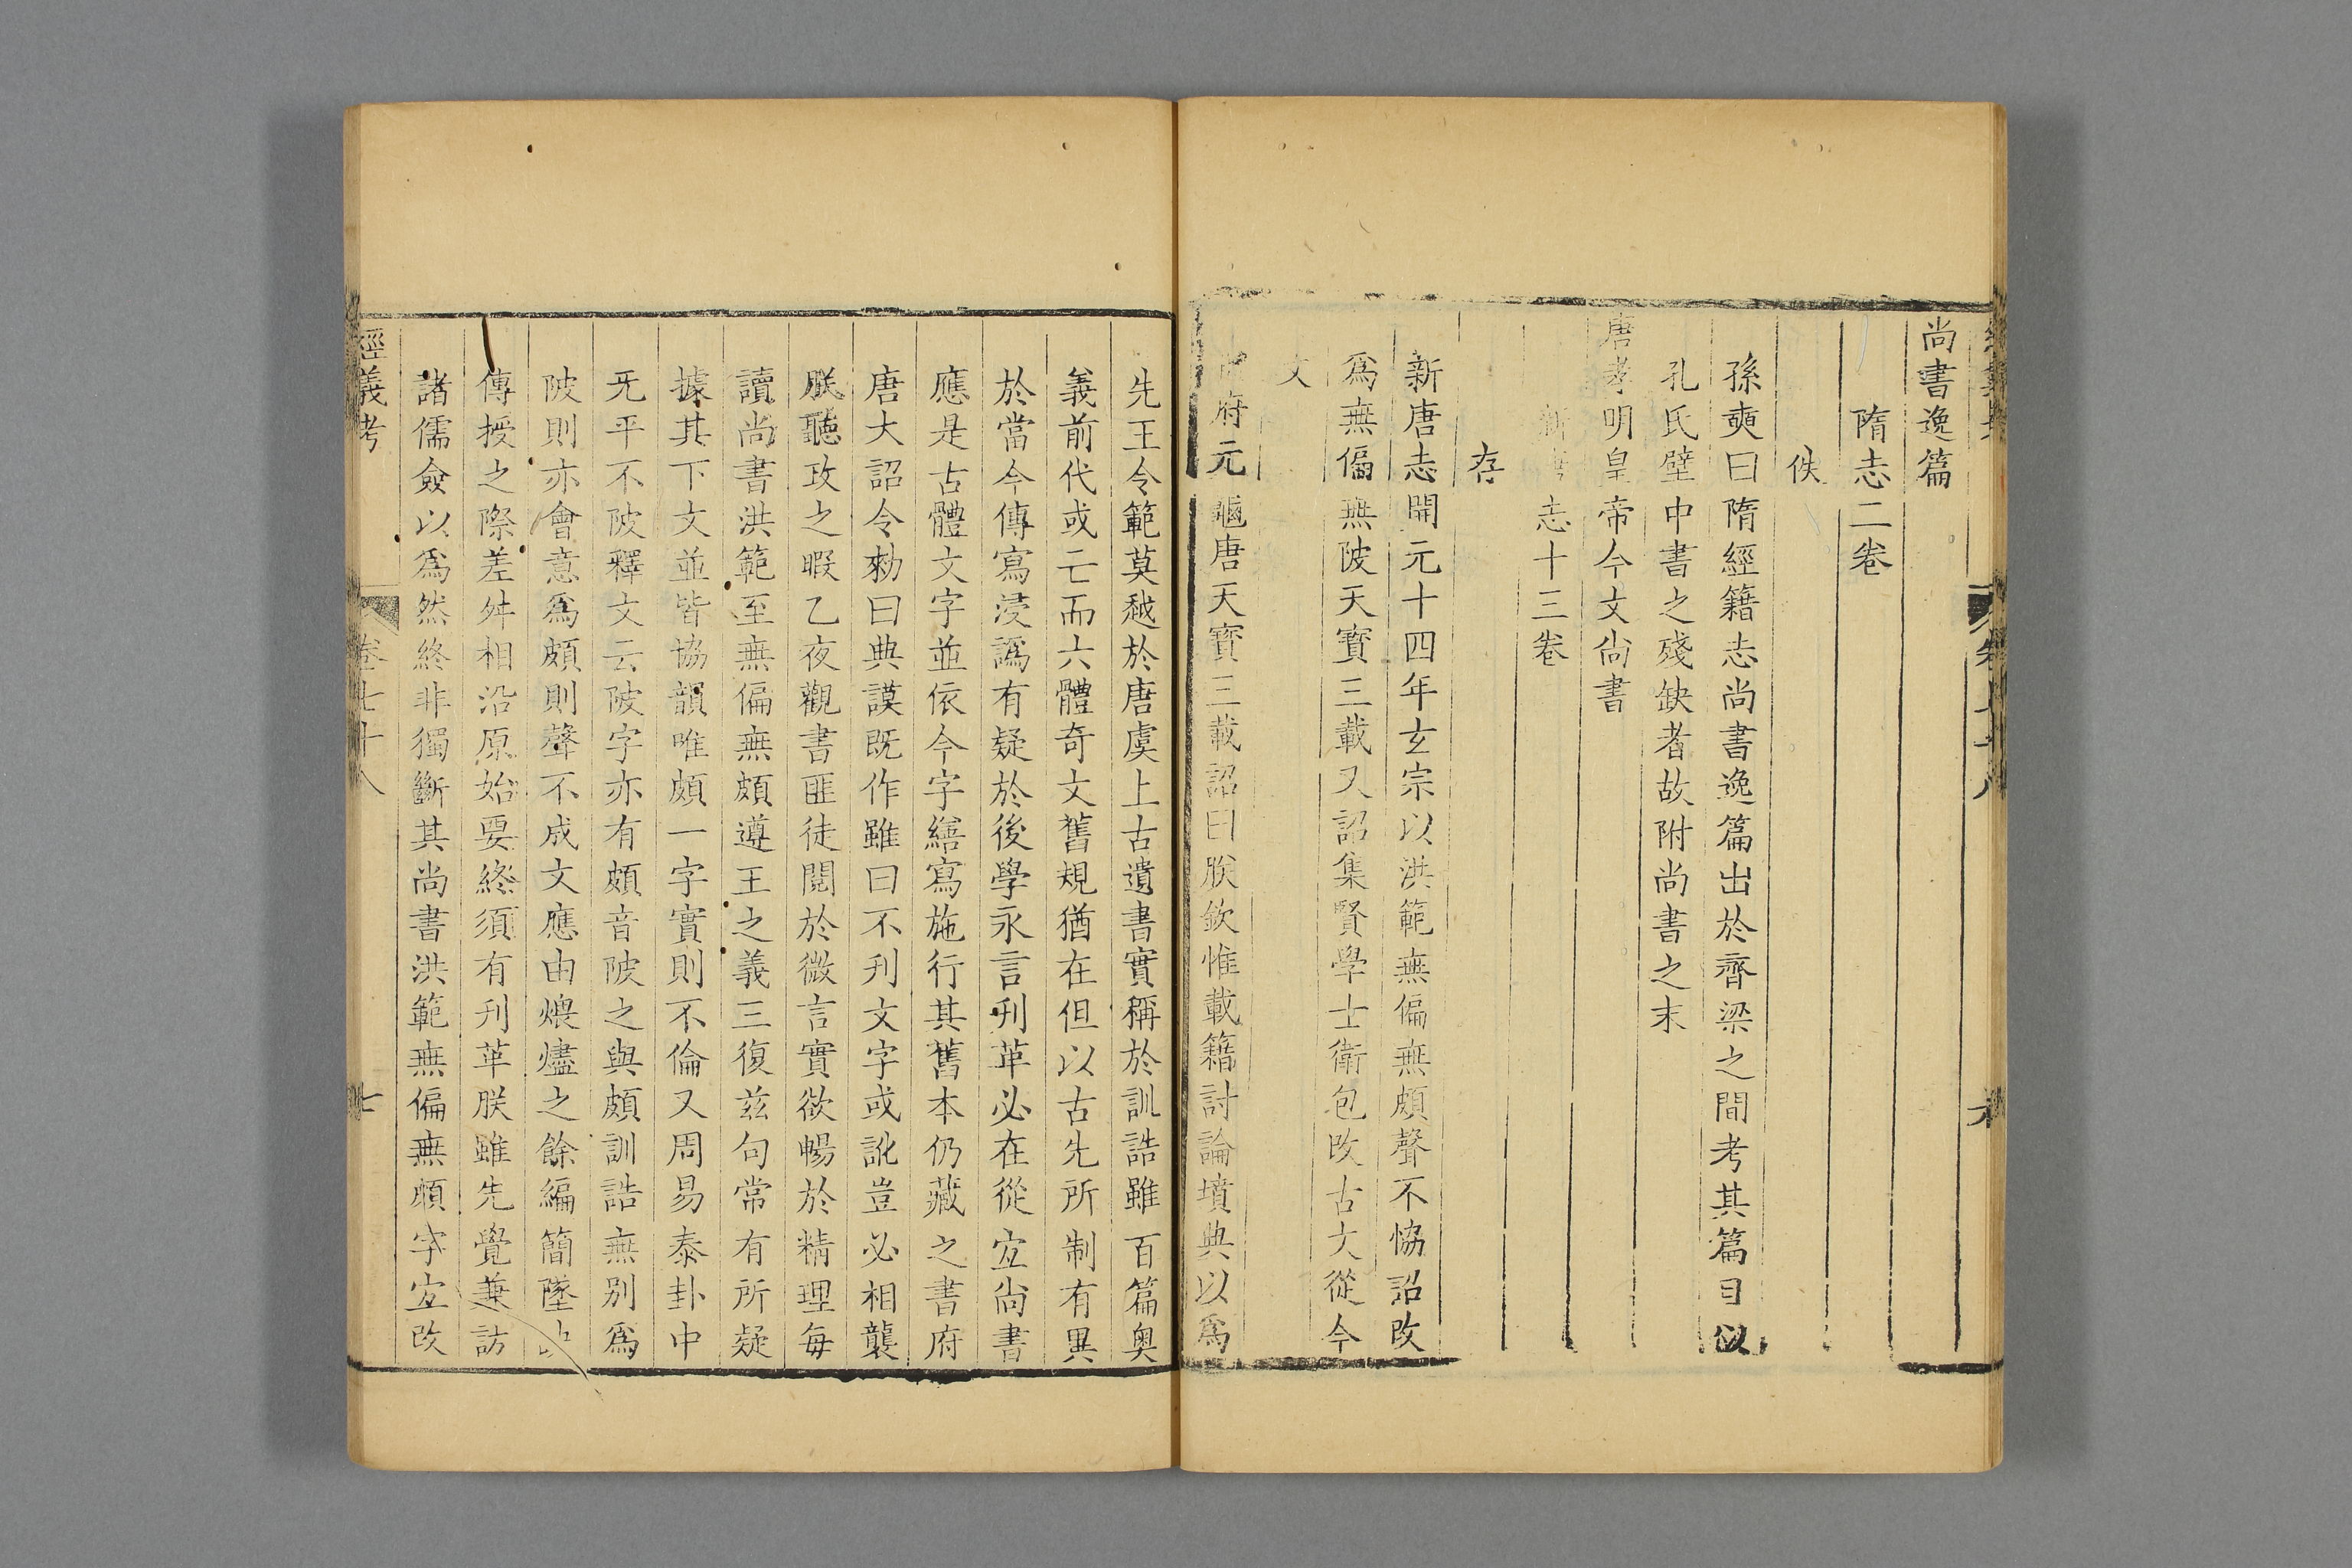 尚書逸篇
隋志二卷
佚
孫奭曰隋經籍志尚書逸篇出於齊梁之間考其篇目似
孔氏壁中書之殘缺者故附尚書之末
唐孝明皇帝今文尚書
志十三卷
存
新唐志開元十四年玄宗以洪範無偏無頗聲不恊詔改
爲無偏無陂天寳三載又詔集賢學士衛包改古文從今
文
府元龜唐天寳三載詔曰朕欽惟載籍討論墳典以爲
先王令範莫越於唐虞上古遺書實稱於訓誥雖百篇奥
義前代或亡而六體奇文舊規猶在但以古先所制有異
於當今傳寫浸譌有疑於後學永言刋革必在從宜尚書
應是古體文字並依今字繕寫施行其舊本仍藏之書府
唐大詔令勑曰典謨既作雖曰不刋文字或訛豈必相襲
朕聽政之暇乙夜觀書匪徒閱於微言實欲暢於精理每
讀尚書洪範至無偏無頗遵王之義三復兹句常有所疑
據其下文並皆協韻唯頗一字實則不倫又周易泰卦中
无平不陂釋文云陂字亦有頗音陂之與頗訓詁無别爲
陂則亦會意爲頗則聲不成文應由煨燼之餘編簡墜
傳授之際差舛相沿原始要終須有刋革朕雖先覺兼訪
諸儒僉以爲然終非獨斷其尚書洪範無偏無頗字宜改
經義考
卷七十八
七